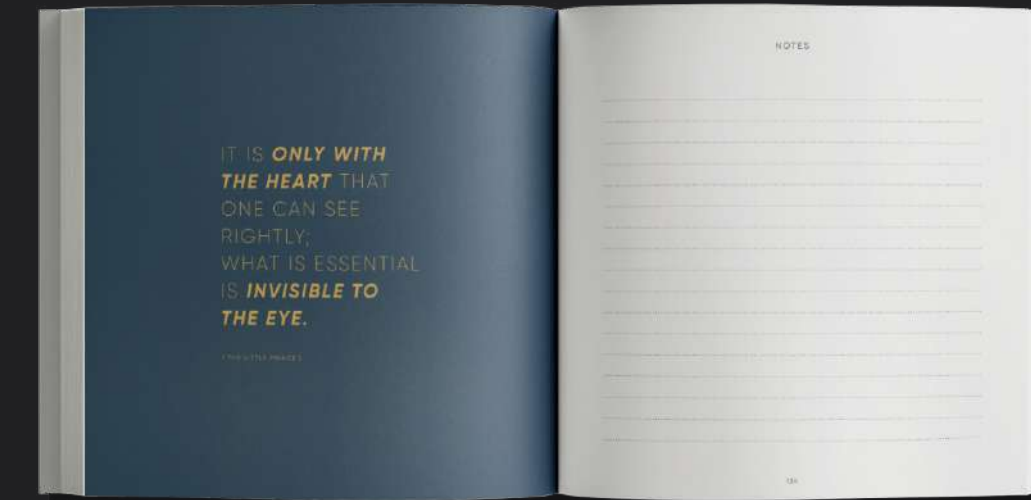 IT IS ONLY WITH
THE HEART THAT
ONE CAN SEE
RIGHTLY;
WHAT IS ESSENTIAL
IS INVISIBLE TO
THE EYE.
NOTES